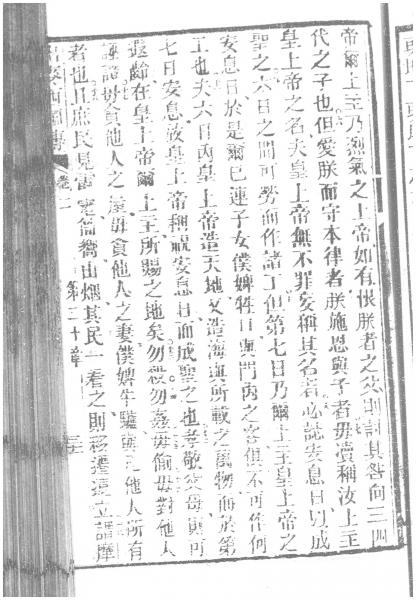 帝爾上主乃烈氣之上帝如有恨朕者之父則討其咎向三四
代之子也但愛朕而守本律者朕施恩與子者毋瀆稱汝上主
皇上帝之名夫皇上帝無不罪妄稱其名者必誌安息日以成
聖之六日之間可勞而作諸工但第七日乃爾上主皇上帝之
安息日於是爾已連子女僕婢牲口與門內之客俱不可作何
工也夫六日內皇上帝造天地又浩海與所載之萬物而於第
七日安息故皇上帝稱祝安息日而成聖之也孝敬父母與可
遐齡在皇上帝爾上主所賜之地矣勿殺勿姦毋偷毋對他人
誣證毋貪他人之屋毋貪他人之妻僕婢牛驢與凡他人所有
者也且庶民見雷山煙其民一看之則移遷遠立謂摩
麥西國傳 第二十章